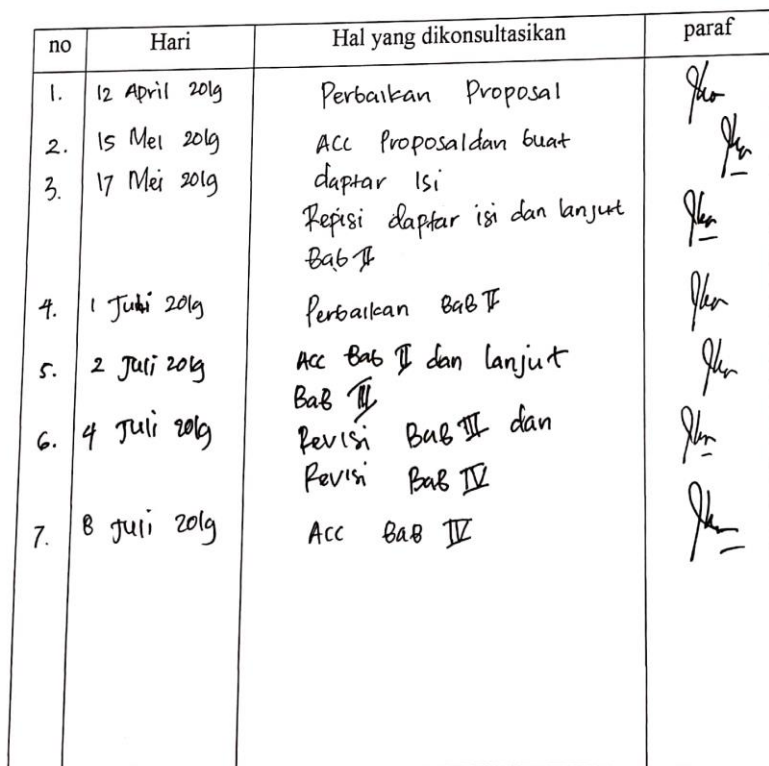 no Hari Hal yang dikonsultasikan paraf
1. 12 April 2019 Perbaikan Proposal
2. 15 Mei 2019 ACC Proposal dan buat
3. 17 Mei 2019 daptar Isi
Repisi daptar isi dan lanjut
Bab II
4. 1 Juli 2019 Perbaikan BaB II
5. 2 Juli 2019 Acc Bab II dan lanjut
BaB III
6. 4 Juli 2019 Revisi BaB III dan
Revisi BaB IV
7. 8 Juli 2019 Acc BaB IV